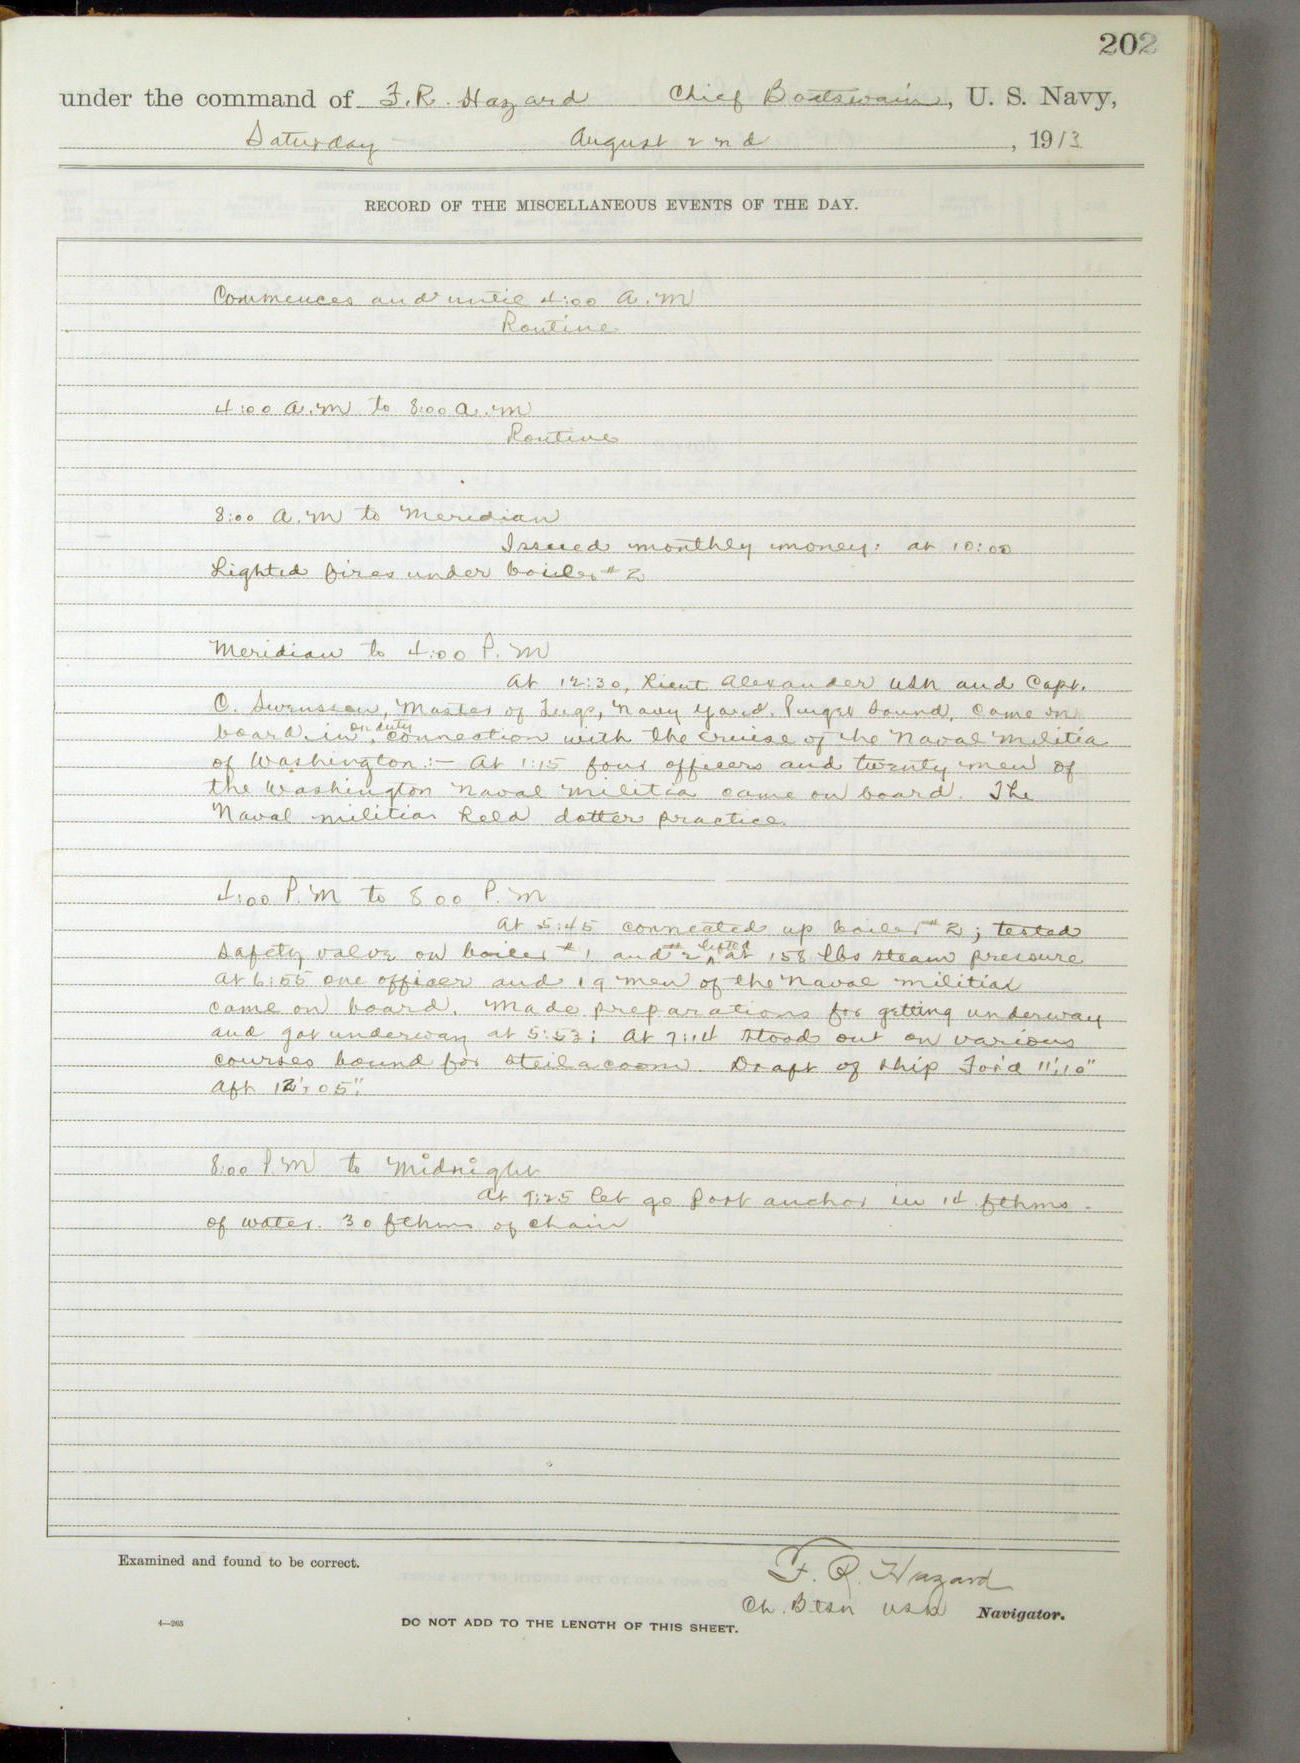 202
under the command of F. R. Hazard Chief Boatswain, U. S. Navy,
Saturday August 2nd, 1913
RECORD OF THE MISCELLANEOUS EVENTS OF THE DAY.
Commences and until 4:00 A.M
Routine
4:00 A.M. to 8:00 A.M
Routine
8:00 A.M to Meridian
Issued monthly money: at 10:00
Lighted fires under boiler #2
Meridian to 4:00 P.M
At 12:30, Lieut Alexander USN and Capt.
C. Swenssen, Master of Tugs, Navy Yard, Puget Sound, came on
board in on duty connection with the cruise of the Naval Militia
of Washington:- At 1:15 four officers and twenty men of
the Washington Naval Militia came on board. The
Naval militia held dotter practice.
4:00 P.M to 8 00 P.M
At 5:45 connected up boiler #2; tested
safety valve on boiler #1 and #2 lifted at 158 lbs steam pressure
At 6:55 one officer and 19 men of the Naval militia
came on board. Made preparations for getting underway
and got underway at 5:53; At 7:14 stood out on various
courses bound for Steilacoom. Draft of ship For'd 11',10"
Aft 12',05":
8:00 P.M to Midnight
At 9:25 let go Port anchor in 14 fthms.
of water. 30 fthms of chain
Examined and found to be correct.
F. R. Hazard
Ch. Btsn USN Navigator.
4—265
DO NOT ADD TO THE LENGTH OF THIS SHEET.